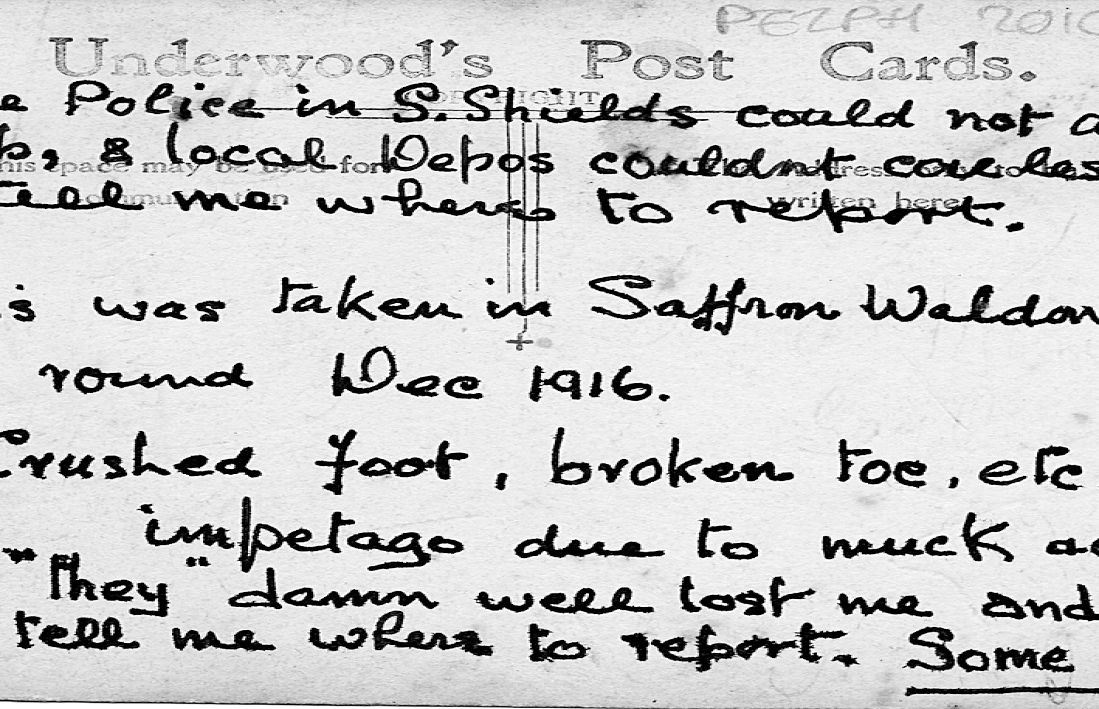 PEZPH 2010
Underwood's Post Cards.
COPYRIGHT
e Police in S. Shields could not a
p, & local Depos couldnt
This space may be used for
communication
address
to be
written here
tell me where to report.
is was taken in Saffron Waldon
round Dec 1916.
Crushed foot, broken toe, etc
impetago due to muck ac
"They" damn well lost me and
tell me where to report. Some